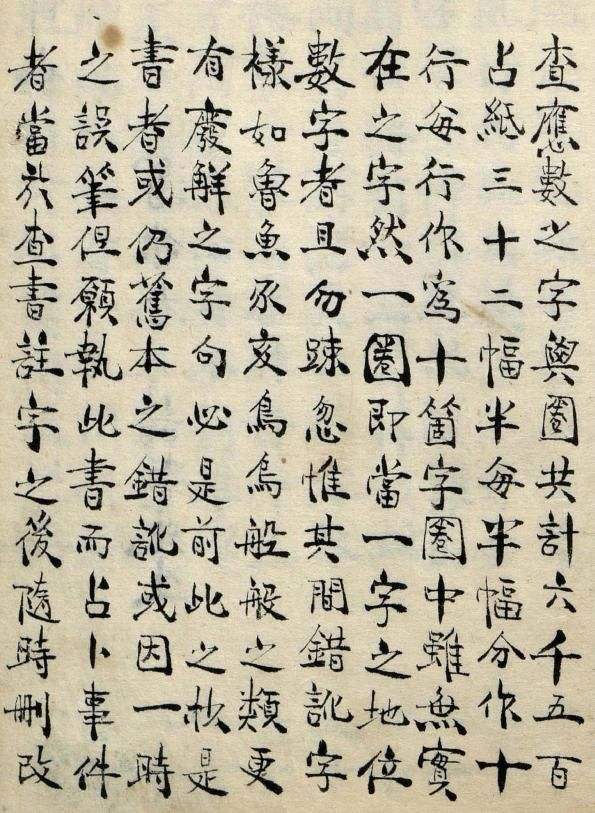 查應數之字與圈共計六千五百
占紙三十二幅半每半幅分作十
行每行作寫十箇字圈中雖無實
在之字然一圈即當一字之地位
數字者且勿踈忽惟其間錯訛字
樣如魯魚豕亥烏焉般般之類更
有廢觧之字句必是前此之抄是
書者或仍舊本之錯訛或因一時
之誤筆但願執此書而占卜事件
者當於查書註字之後隨時刪改